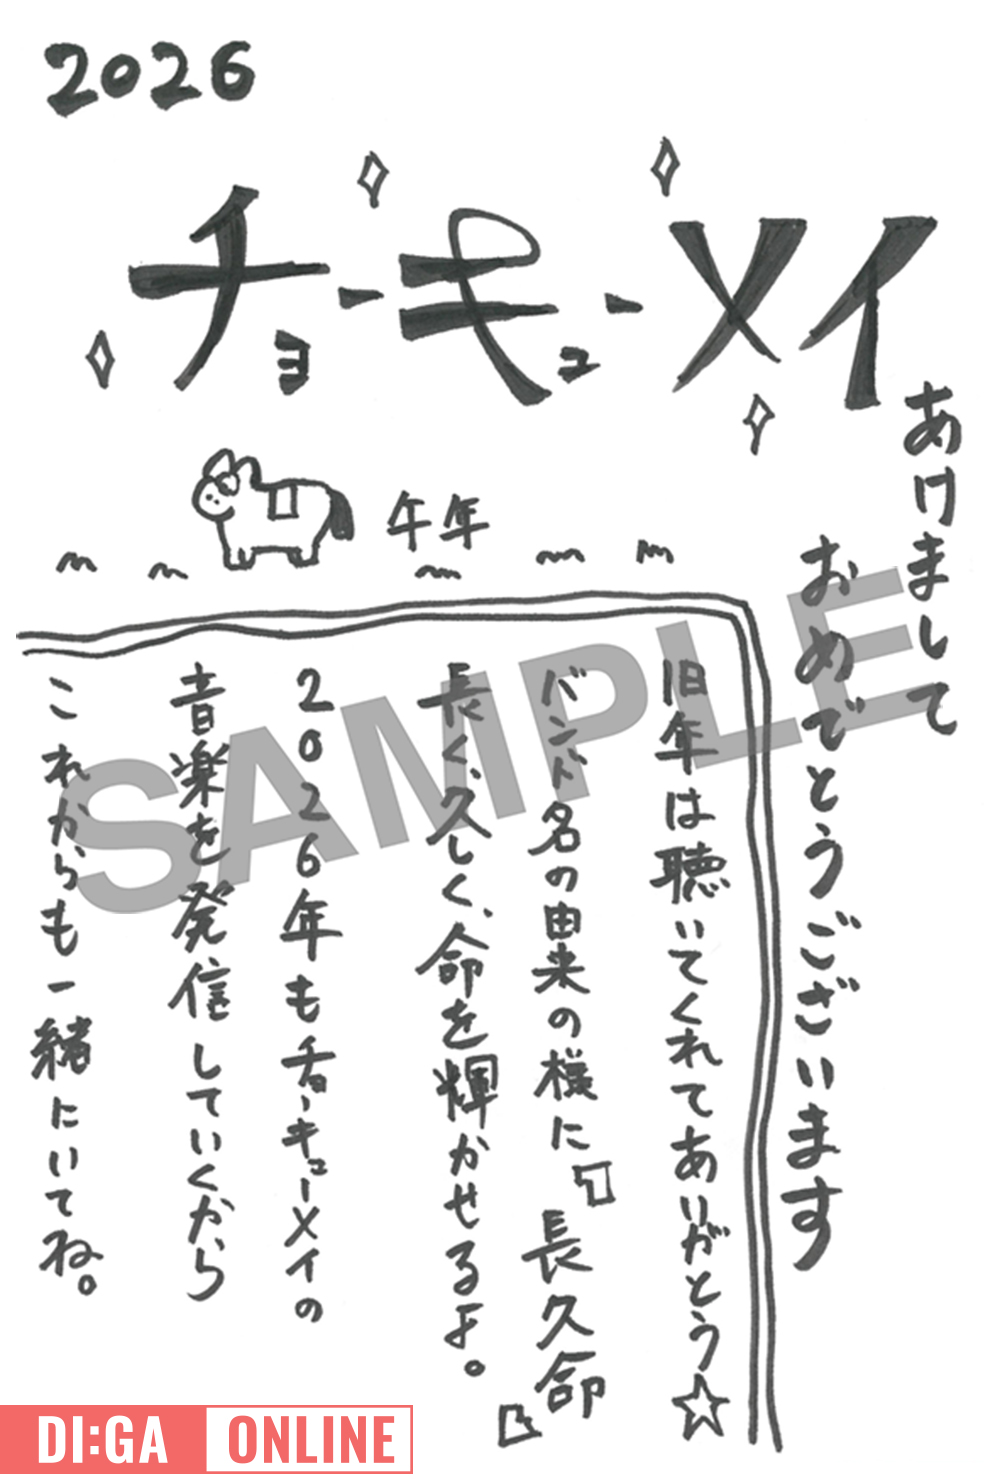 2026
チョーキューメイ
午年
あけまして
おめでとうございます
旧年は聴いてくれてありがとう☆
バンド名の由来の様に『長久命』
長く、久しく、命を輝かせるよ。
2026年もチョーキューメイの
音楽を発信していくから
これからも一緒にいてね。
SAMPLE
DI:GA ONLINE